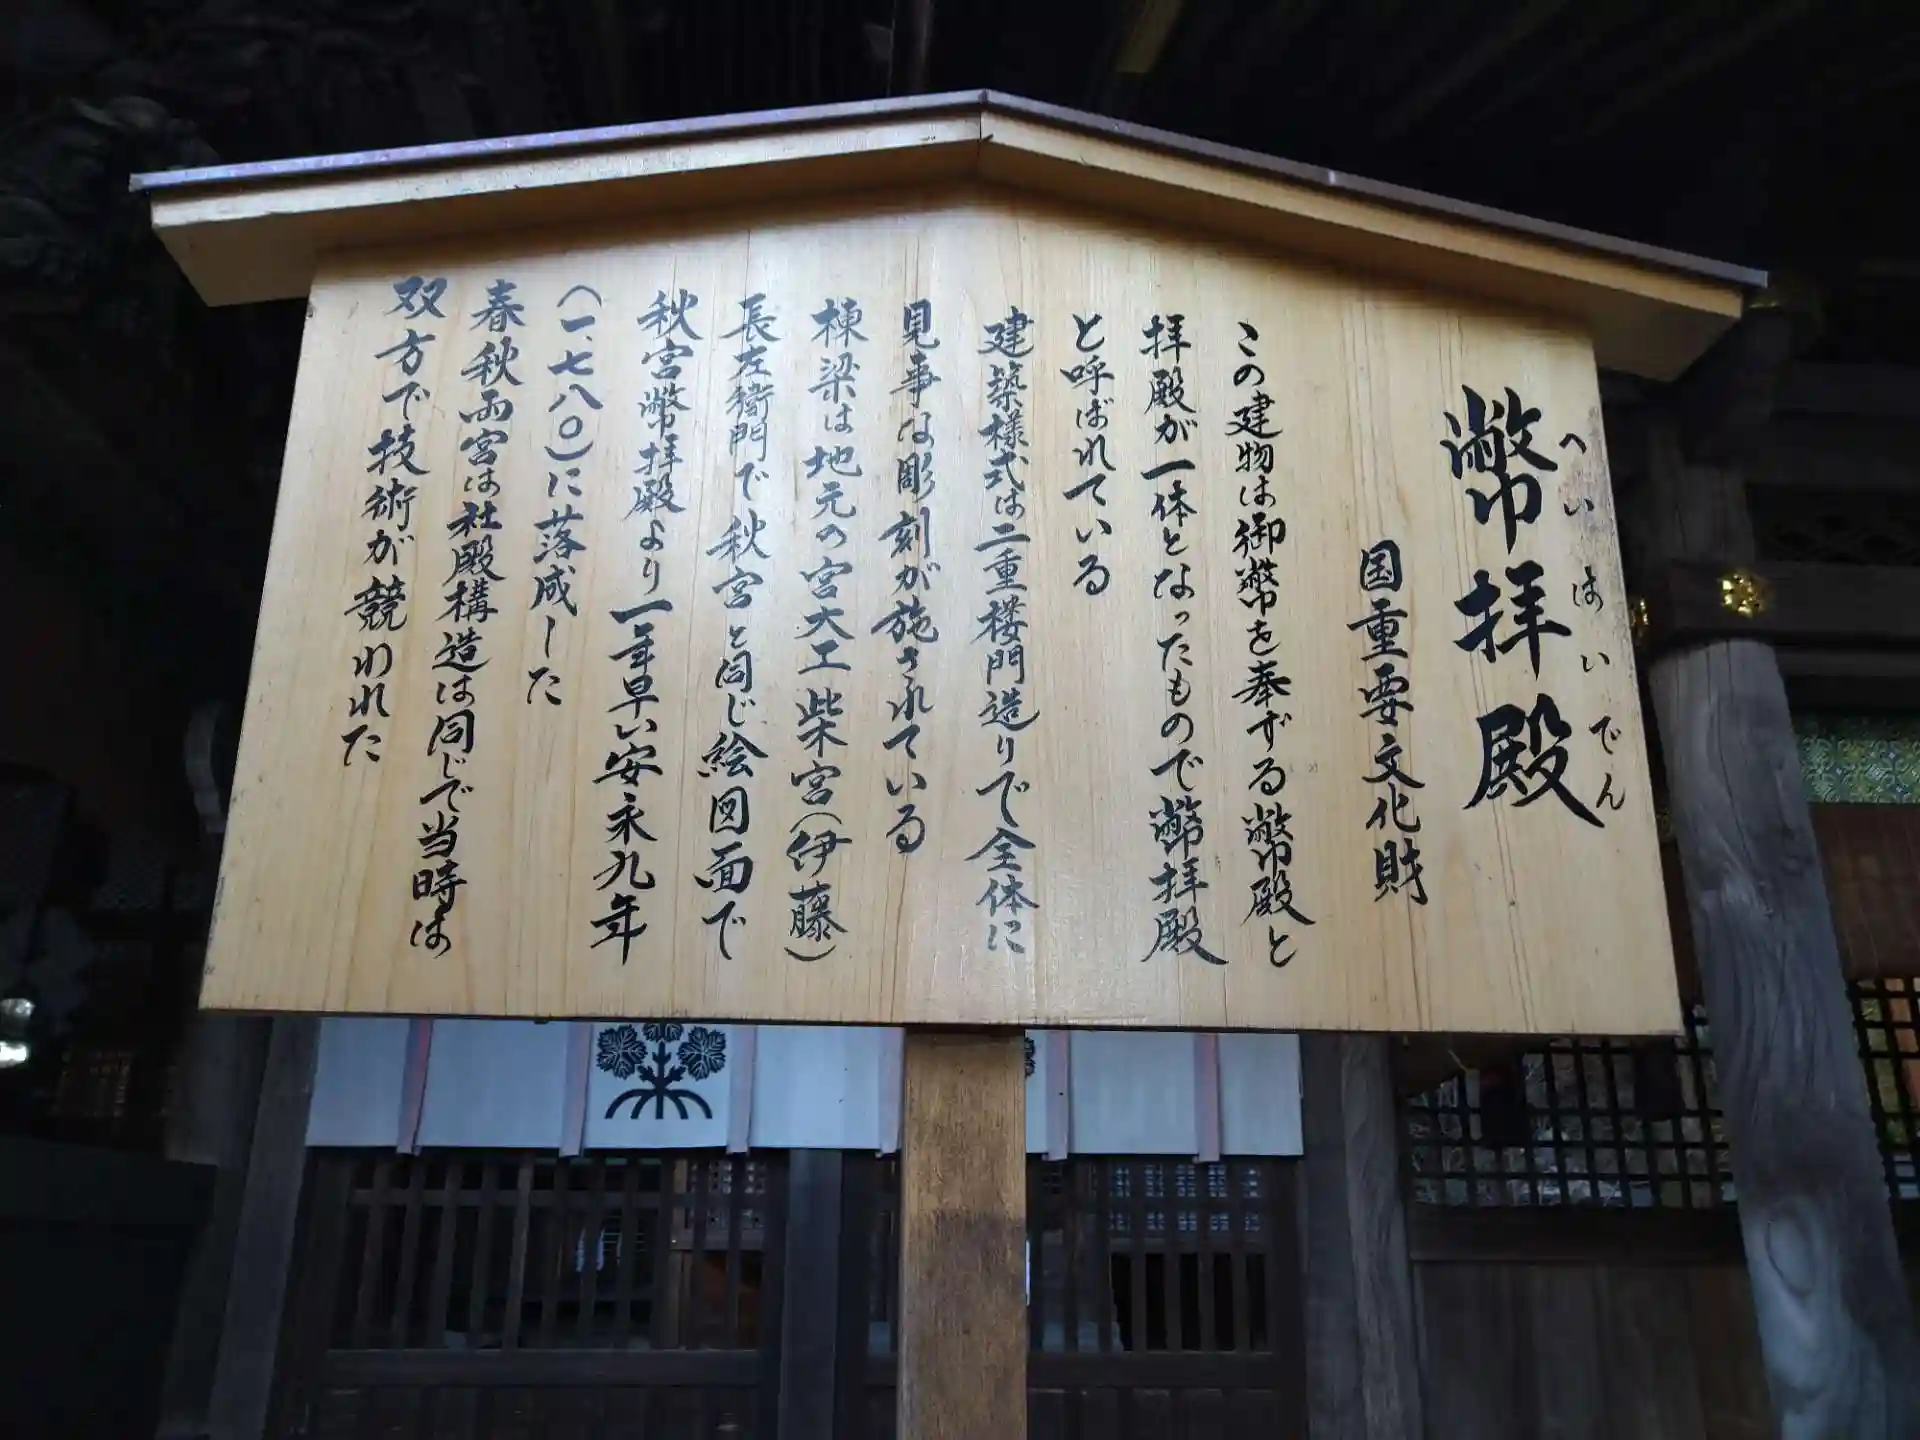 幣拝殿
へいはいでん
国重要文化財
この建物は御幣帛を奉ずる幣殿と
拝殿が一体となったもので幣拝殿
と呼ばれている
建築様式は二重楼門造りで全体に
見事な彫刻が施されている
棟梁は地元の宮大工柴宮(伊藤)
長左衛門で秋宮と同じ絵図面で
秋宮幣拝殿より一年早い安永九年
(一、七八〇)に落成した
春秋両宮は社殿構造は同じで当時は
双方で技術が競われた